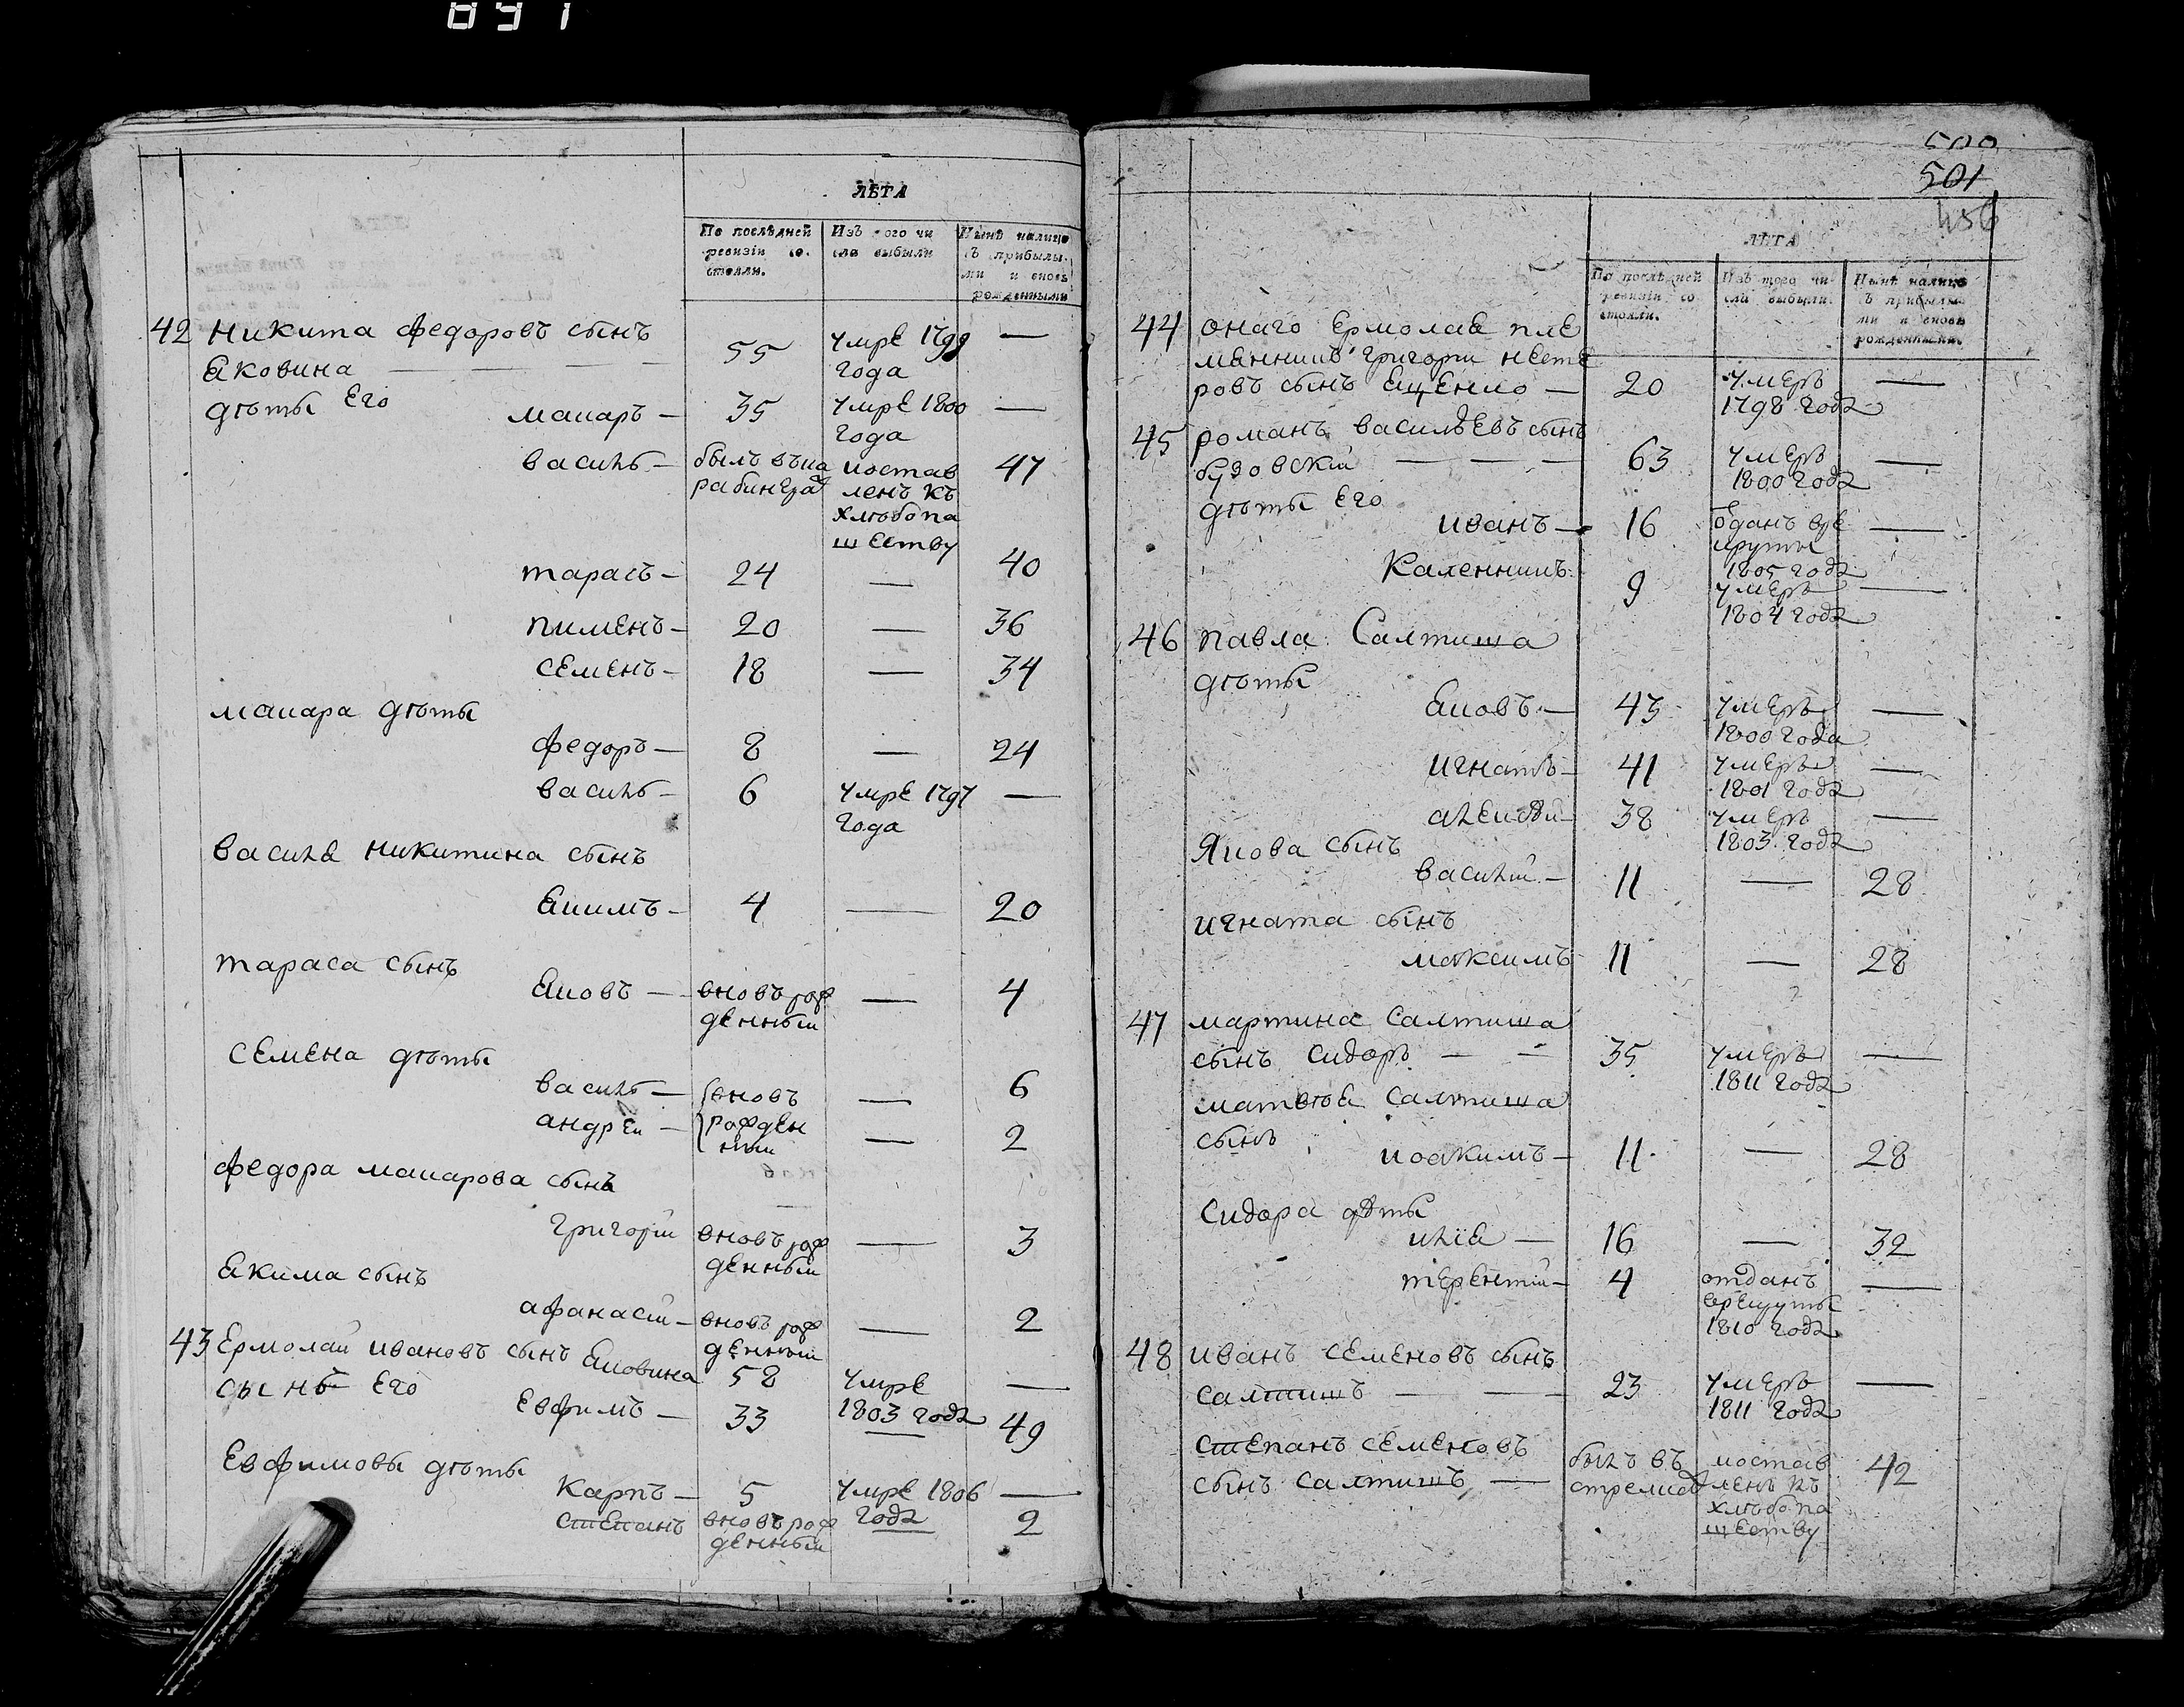 891
ЛѢТА
По послѣдней ревизіи состояли.
Изъ того числа выбыли
Нынѣ на лицо съ прибылыми и вновь рожденными
42 никита федоровъ сынъ
Яковина — 55 умре 1799 года —
дѣты Его
макаръ — 35 умре 1800 года —
василь — былъ въ поставленъ къ хлѣбопашеству 47
тарасъ — 24 — 40
пименъ — 20 — 36
семенъ — 18 — 34
макара дѣты
федоръ — 8 — 24
василь — 6 умре 1797 года —
василя никитина сынъ
Якимъ — 4 — 20
тараса сынъ
Яковъ — вновь рожденный — 4
семена дѣты
василь — вновь рожденныи — 6
андреи — 2
федора макарова сынъ
григории вновь рожденныи — 3
Якима сынъ
афанасии — вновь рожденныи — 2
43 Ермолаи ивановъ сынъ Яковина 58 умре 1803 года —
сынъ Его Евфимъ — 33 — 49
Евфимовы дѣты
Карпъ — 5 умре 1806 года —
степанъ вновь рожденныи 2
500
501
456
ЛѢТА
По послѣдней ревизіи состояли.
Изъ того числа выбыли.
Нынѣ на лицо съ прибылыми и вновь рожденными.
44 онаго Ермолая пле
менникъ григории нестѣ
ровъ сынъ Ященко — 20 умеръ 1798 года —
45 романъ васильевъ сынъ
бузовскии — 63 умеръ 1800 года —
дѣты Его
иванъ — 16 одданъ врекруты 1805 года —
Каленникъ 9 умеръ 1804 года —
46 павла Салтиша
дѣты
Яковъ — 43 умеръ 1800 года —
игнатъ — 41 умеръ 1801 года —
алексѣи — 38 умеръ 1803 года —
Якова сынъ
василии — 11 — 28
игната сынъ
максимъ 11 — 28
47 мартина салтиша
сынъ сидоръ — 35 умеръ 1811 года —
матвѣя салтиша
сынъ иоакимъ — 11 — 28
сидора дѣты
илія — 16 — 32
терентии — 4 отданъ врекруты 1810 года —
48 иванъ семеновъ сынъ
салтишъ — 23 умеръ 1811 года —
степанъ семеновъ
сынъ салтишъ — былъ въ поставленъ къ хлѣбопаществу 42